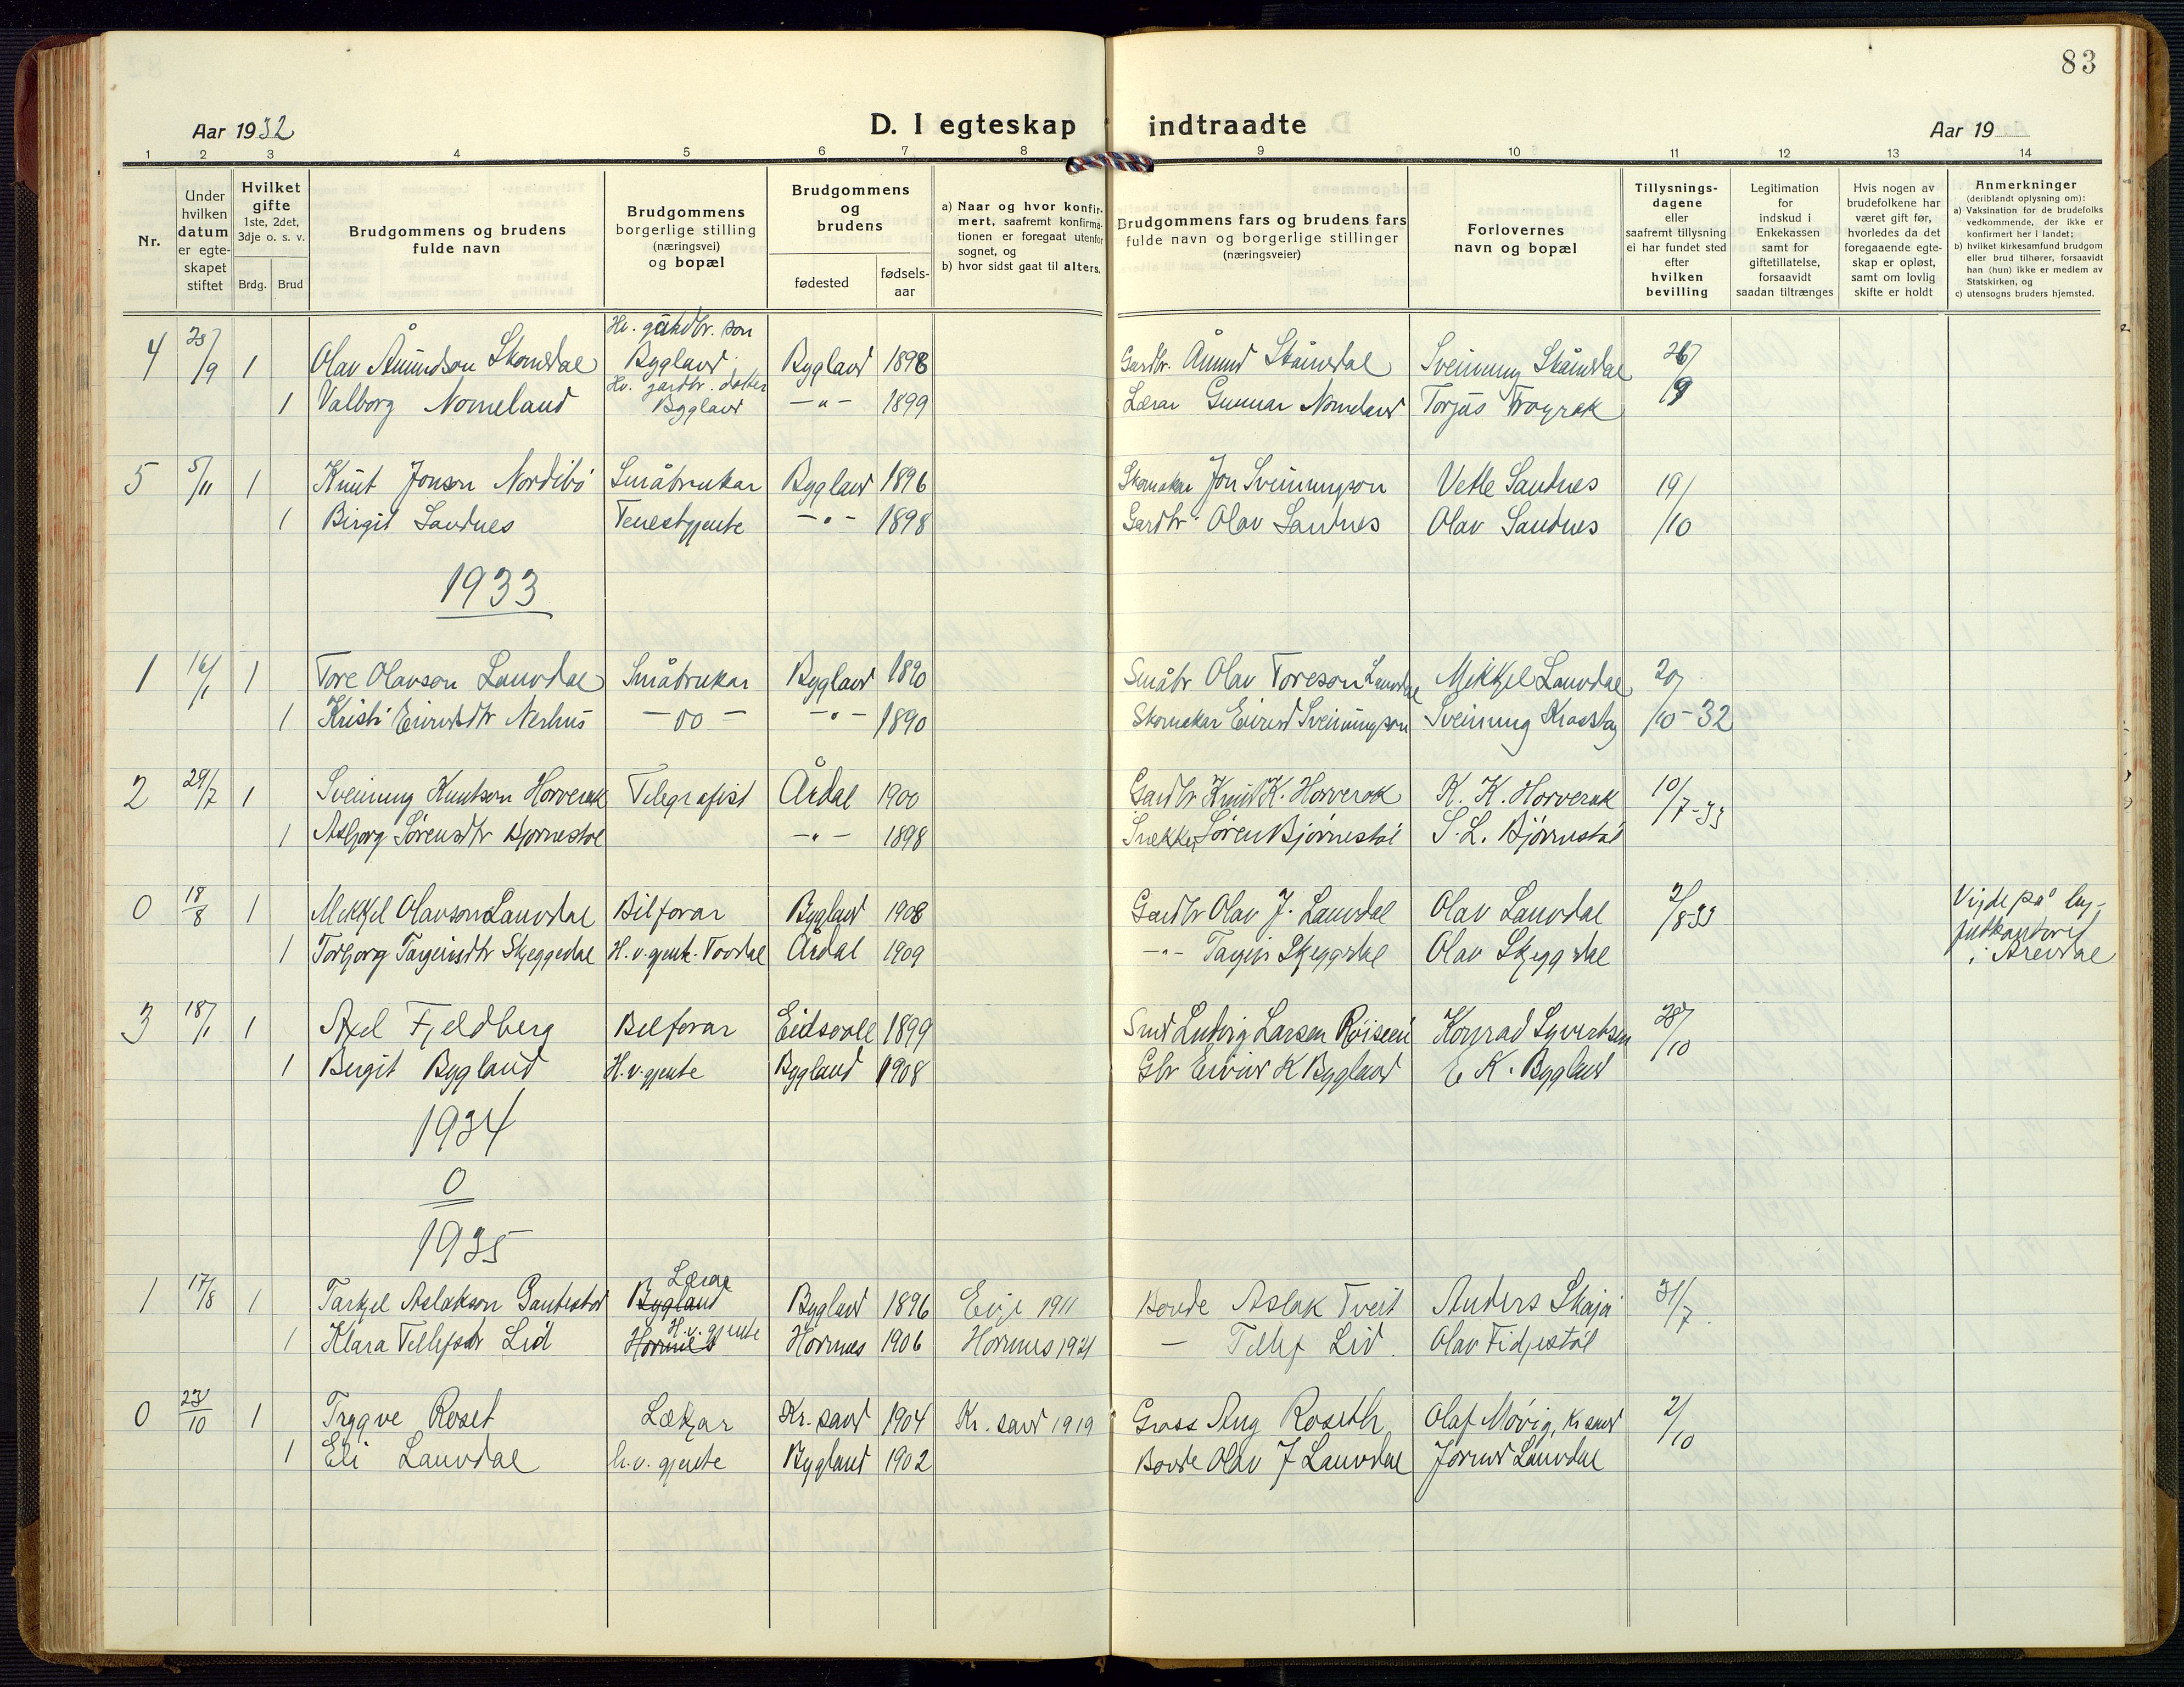 83
Aar 1932
D. I egteskap indtraadte
Aar 19
1 2 3 4 5 6 7 8 9 10 11 12 13 14
Nr.
Under hvilken datum er egte-skapet stiftet
Hvilket gifte 1ste, 2det, 3dje o. s. v.
Brdg. Brud
Brudgommens og brudens fulde navn
Brudgommens borgerlige stilling (næringsvei) og bopæl
Brudgommens og brudens
fødested
fødsels-aar
a) Naar og hvor konfir-mert, saafremt konfirma-tionen er foregaat utenfor sognet, og
b) hvor sidst gaat til alters.
Brudgommens fars og brudens fars fulde navn og borgerlige stillinger (næringsveier)
Forlovernes navn og bopæl
Tillysnings-dagene eller saafremt tillysning ei har fundet sted efter hvilken bevilling
Legitimation for indskud i Enkekassen samt for giftetillatelse, forsaavidt saadan tiltrænges
Hvis nogen av brudefolkene har været gift før, hvorledes da det foregaaende egte-skap er opløst, samt om lovlig skifte er holdt
Anmerkninger (deriblandt oplysning om):
a) Vaksination for de brudefolks vedkommende, der ikke er konfirmert her i landet;
b) hvilket kirkesamfund brudgom eller brud tilhører, forsaavidt han (hun) ikke er medlem av Statskirken, og
c) utensogns bruders hjemsted.
Hv. gardbr. son
4 /9 1 Olav Åmundson Skomedal Bygland Bygland 1898 Gardbr. Åmund Skåmedal Sveinung Skåmedal 26/
Hv. gardbr. dotter
1 Valborg Nomeland Bygland -"- 1899 Lærar Gunnar Nomeland Torjus Froyrak /9
5 5/11 1 Knut Jonson Nordibö Småbrukar Bygland 1896 Skomakar Jon Sveinungson Vetle Sandnes 19/
1 Birgit Sandnes Tenestgjente -"- 1898 Gardbr Olav Sandnes Olav Sandnes /10
1933
1 16/1 1 Tore Olavson Lauvdal Småbrukar Bygland 1890 Småbr Olav Toreson Lauvdal Mikkjel Lauvdal 20/
1 Kristi Eivindsdtr Nerhus -oo- -"- 1890 Skomakar Eivind Sveinungson Sveinung /10-32
2 29/7 1 Sveinung Knutson Horverak Telegrafist Årdal 1900 Gardbr Knut K. Horverak K. K. Horverak 10/7-33
1 Asbjorg Sörensdtr Bjornestøl -"- 1898 Snekker Søren Bjørnestøl S. L. Bjørnestøl
0 18/8 1 Mikkjel Olavson Lauvdal Bilførar Bygland 1908 Gardbr Olav J. Lauvdal Olav Lauvdal 2/8-33 Vigde på
1 Torbjorg Targeirsdtr Skjeggedal H.v. gjente. Tovdal Årdal 1909 -"- Targeir Skjeggedal Olav Skjeggedal futkontoret i Arendal
3 18/1 1 Axel Fjeldberg Bilførar Eidsvoll 1899 Smed Ludvig Larsen Konrad Syvertsen 28/10
1 Birgit Bygland H.v. gjente Bygland 1908 Gbr Eivind K Bygland E K. Bygland
1934
0
1935
Lærar
1 17/8 1 Tarkjel Aslakson Gautestad Bygland Bygland 1896 Evje 1911 Bonde Aslak Tveit Anders Skajå 31/7
H.v. gjente
1 Klara Tellefsdtr Lid Hornnes Hornnes 1906 Hornnes 1921 - Tellef Lid. Olav Fidjestöl
0 23/10 1 Trygve Roset Lækjar Kr. sand 1904 Kr. sand 1919 Gross Aug Roseth Olaf Mövig, Kr sand 2/10
1 Eli Lauvdal h.v. gjente Bygland 1902 Bonde Olav J Lauvdal Jorund Lauvdal